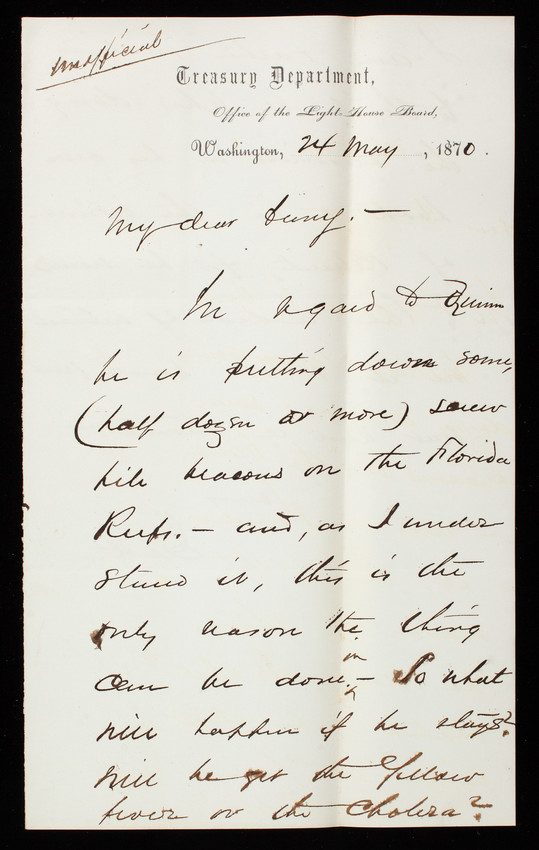 unofficial
Treasury Department,
Office of the Light-House Board,
Washington, 24 May, 1870.
My dear
In regard to Quinn
he is putting down some,
(half dozen or more) screw
pile beacons on the Florida
Reefs. - and, as I under
stand it, this is the
only reason the thing
can be done. - So what
will happen if he stays?
Will he get the Yellow
fever or the Cholera?